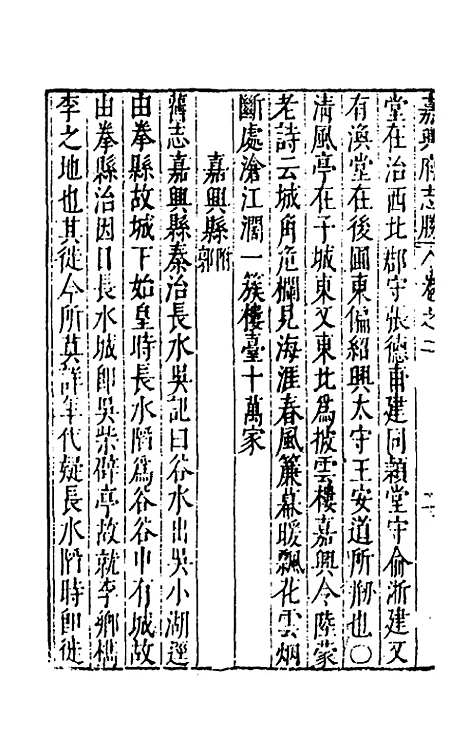 嘉興府志勝 卷之二
堂在治西北郡守張德甫建同穎堂守俞浙建又
有渙堂在後圃東偏紹興太守王安道所剏也〇
清風亭在子城東又東北爲披雲樓嘉興令陸蒙
老詩云城角危欄見海涯春風簾幕暖飄花雲烟
斷處滄江濶一簇樓臺十萬家
嘉興縣附郭
舊志嘉興縣秦治長水吳記曰谷水出吳小湖逕
由拳縣故城下始皇時長水陷爲谷谷中有城故
由拳縣治因曰長水城即吳柴辟亭故就李鄉檇
李之地也其徙今所莫詳年代疑長水陷時即徙